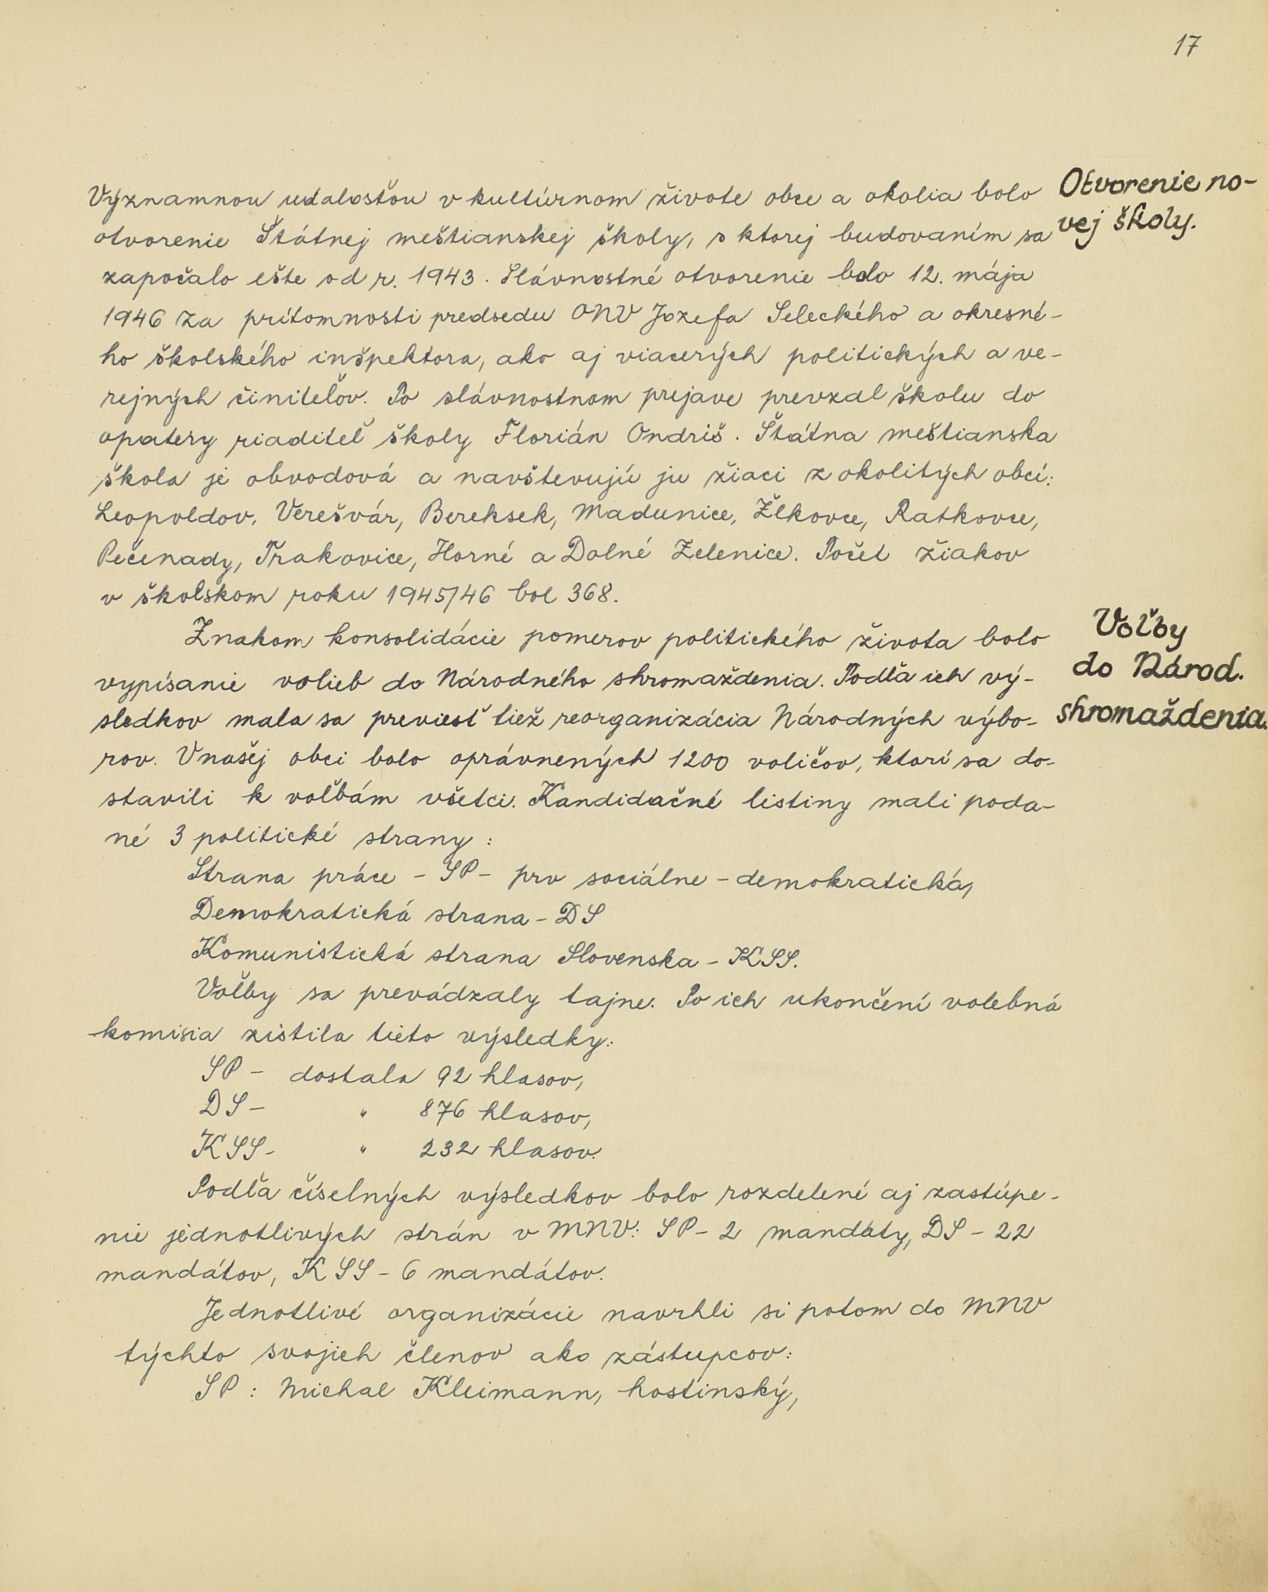 17
Otvorenie no-
vej školy.
Významnou udalosťou v kultúrnom živote obce a okolia bolo
otvorenie Štátnej meštianskej školy, s ktorej budovaním sa
započalo ešte od r. 1943. Slávnostné otvorenie bolo 12. mája
1946 za prítomnosti predsedu ONV Jozefa Seleckého a okresné-
ho školského inšpektora, ako aj viacerých politických a ve-
rejných činiteľov. Po slávnostnom prejave prevzal školu do
opatery riaditeľ školy Florián Ondriš. Štátna meštianska
škola je obvodová a navštevujú ju žiaci z okolitých obcí:
Leopoldov, Verešvár, Bereksek, Madunice, Žlkovce, Ratkovce,
Pečenady, Trakovice, Horné a Dolné Zelenice. Počet žiakov
v školskom roku 1945/46 bol 368.
Voľby
do Národ.
shromaždenia.
Znakom konsolidácie pomerov politického života bolo
vypísanie volieb do Národného shromaždenia. Podľa ich vý-
sledkov mala sa previesť tiež reorganizácia Národných výbo-
rov. V našej obci bolo oprávnených 1200 voličov, ktorí sa do-
stavili k voľbám všetci. Kandidačné listiny mali poda-
né 3 politické strany:
Strana práce - SP - prv sociálne - demokratická,
Demokratická strana - DS
Komunistická strana Slovenska - KSS.
Voľby sa prevádzaly tajne. Po ich ukončení volebná
komisia zistila tieto výsledky:
SP - dostala 92 hlasov,
DS - " 876 hlasov,
KSS - " 232 hlasov.
Podľa číselných výsledkov bolo rozdelené aj zastúpe-
nie jednotlivých strán v MNV: SP - 2 mandáty, DS - 22
mandátov, KSS - 6 mandátov.
Jednotlivé organizácie navrhli si potom do MNV
týchto svojich členov ako zástupcov:
SP: Michal Kleimann, hostinský,